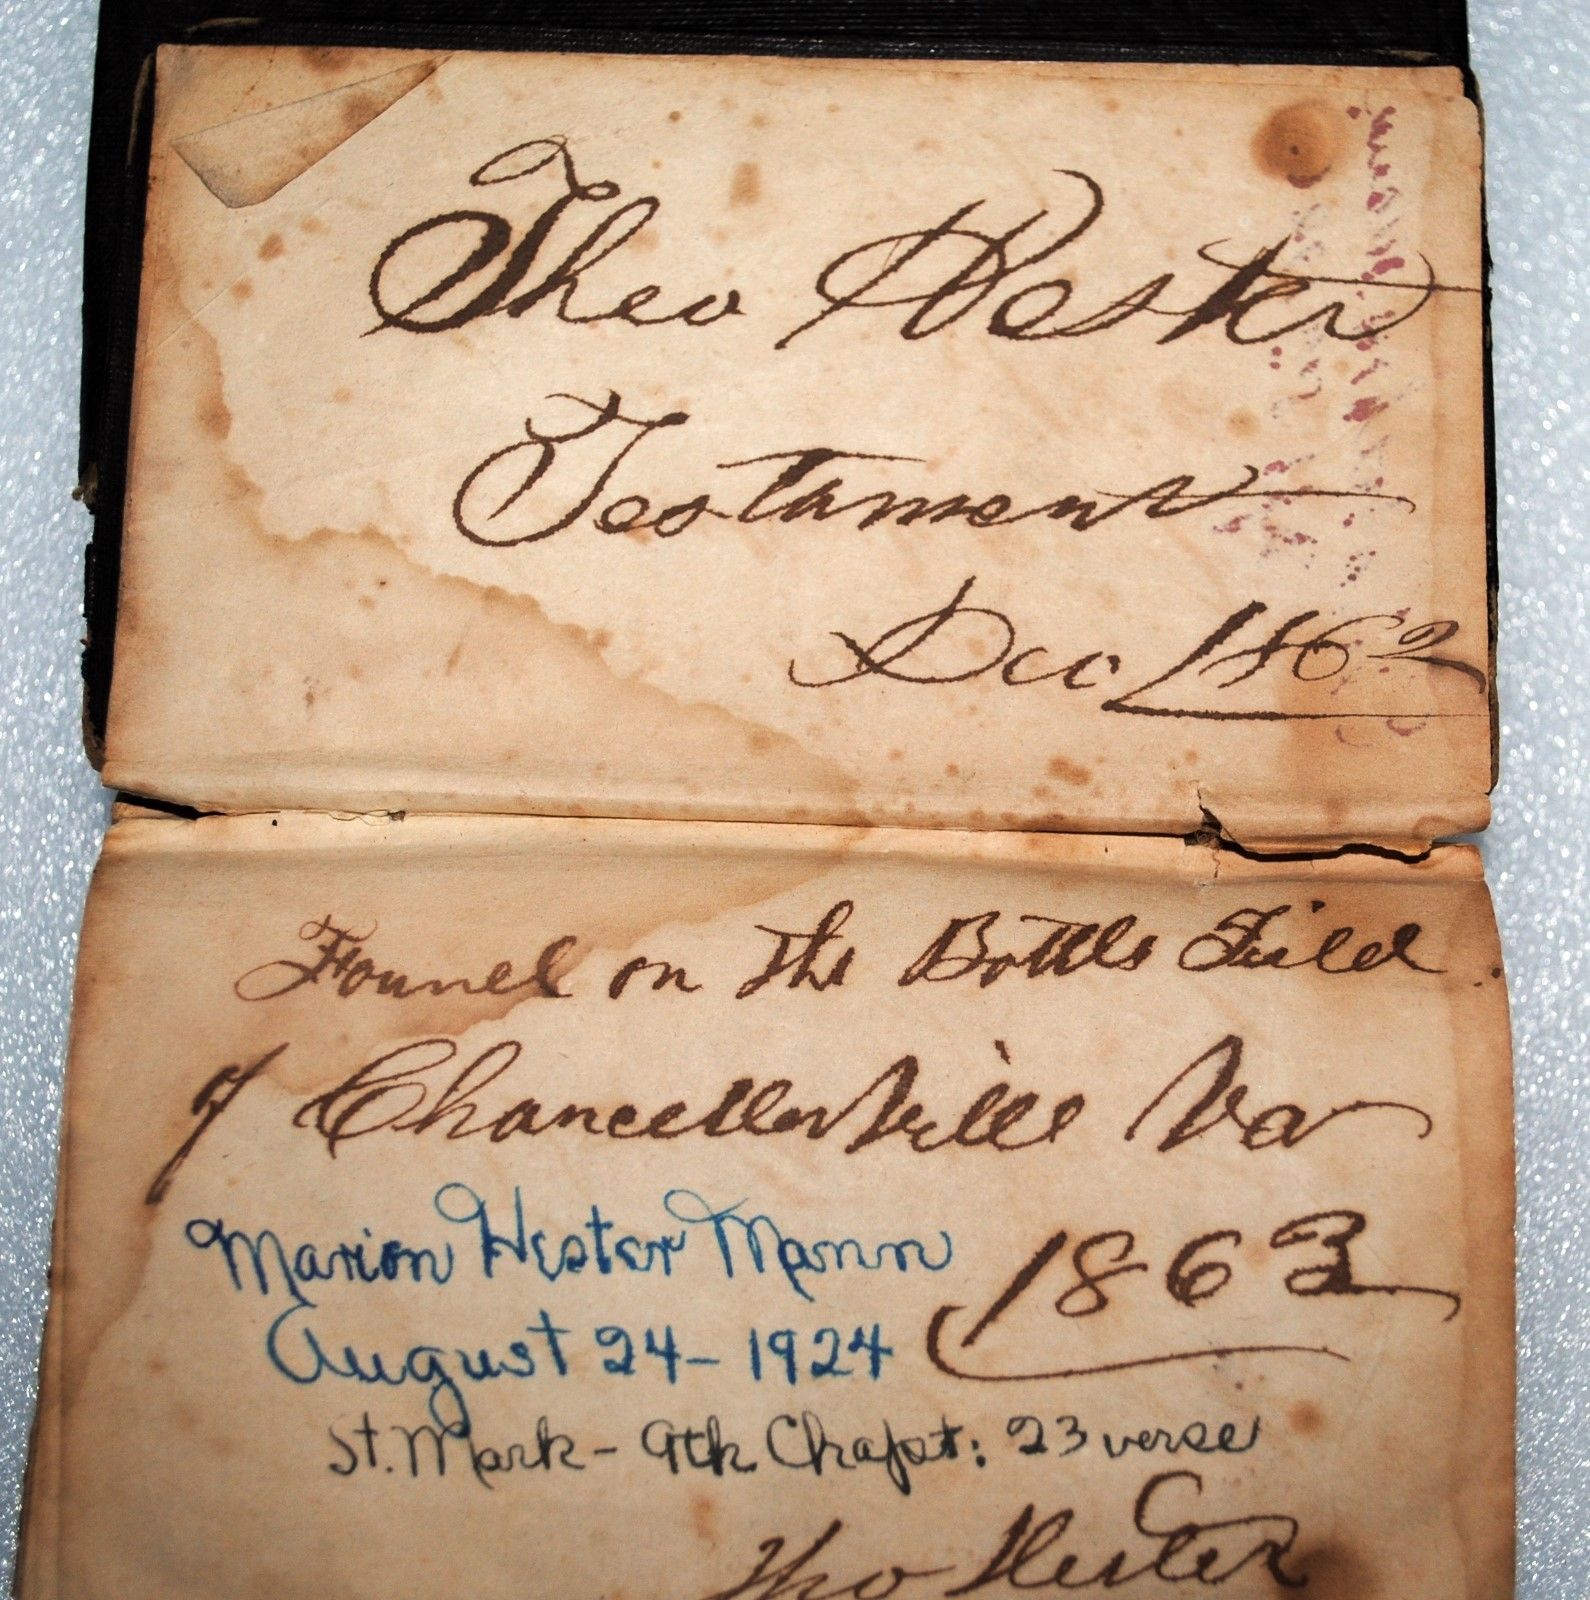 Theo Hester
Testament
Dec 1862
Found on the Battle Field
of Chancellorville Va
1863
Marion Hester Mann
August 24 - 1924
St. Mark - 9th Chapt: 23 verse
Theo Hester